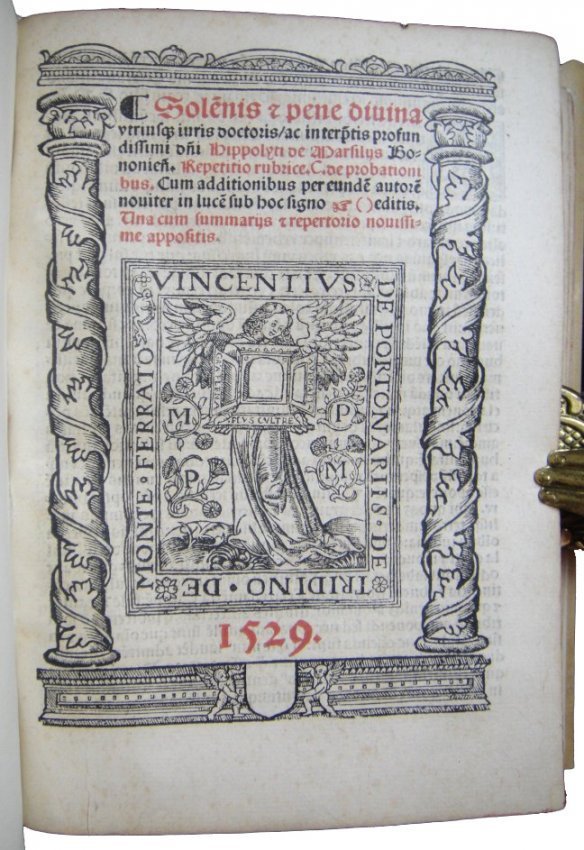 ¶ Solẽnis ⁊ pene divina
vtriusqꝫ iuris doctoris/ac in terp̃tis profun
dissimi dñi Hippolyti de Marsilijs Bo-
nonieñ. Repetitio rubrice. C. de probationi
bus. Cum additionibus per eundẽ autorẽ
noviter in lucẽ sub hoc signo ☞ () editis.
Una cum summarijs ⁊ repertorio nouissi-
me appositis.
VINCENTIVS
DE PORTONARIIS · DE
TRIDINO · DE
MONTE · FERRATO
M P
PLVS VLTRE
P M
1529.